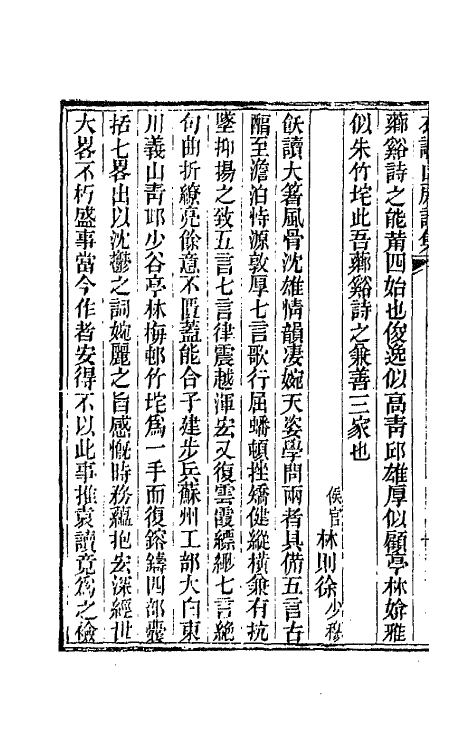 薌谿詩之能萌四始也俊逸似高靑邱雄厚似顧亭林嫥雅
似朱竹垞此吾薌谿詩之兼善三家也
侯官林則徐少穆
飫讀大箸風骨沈雄情韻淒婉天姿學問兩者具備五言古
醞至澹泊恃源敦厚七言歌行屈蟠頓挫矯健縱橫兼有抗
墜抑揚之致五言七言律震越渾宏又復雲霞縹緲七言絕
句曲折繚亮餘意不匱蓋能合子建步兵蘇州工部太白東
川義山靑邱少谷亭林梅邨竹垞爲一手而復鎔鑄四部囊
括七畧出以沈鬱之詞婉麗之旨感慨時務蘊抱宏深經世
大畧不朽盛事當今作者安得不以此事推袁讀竟爲之儉